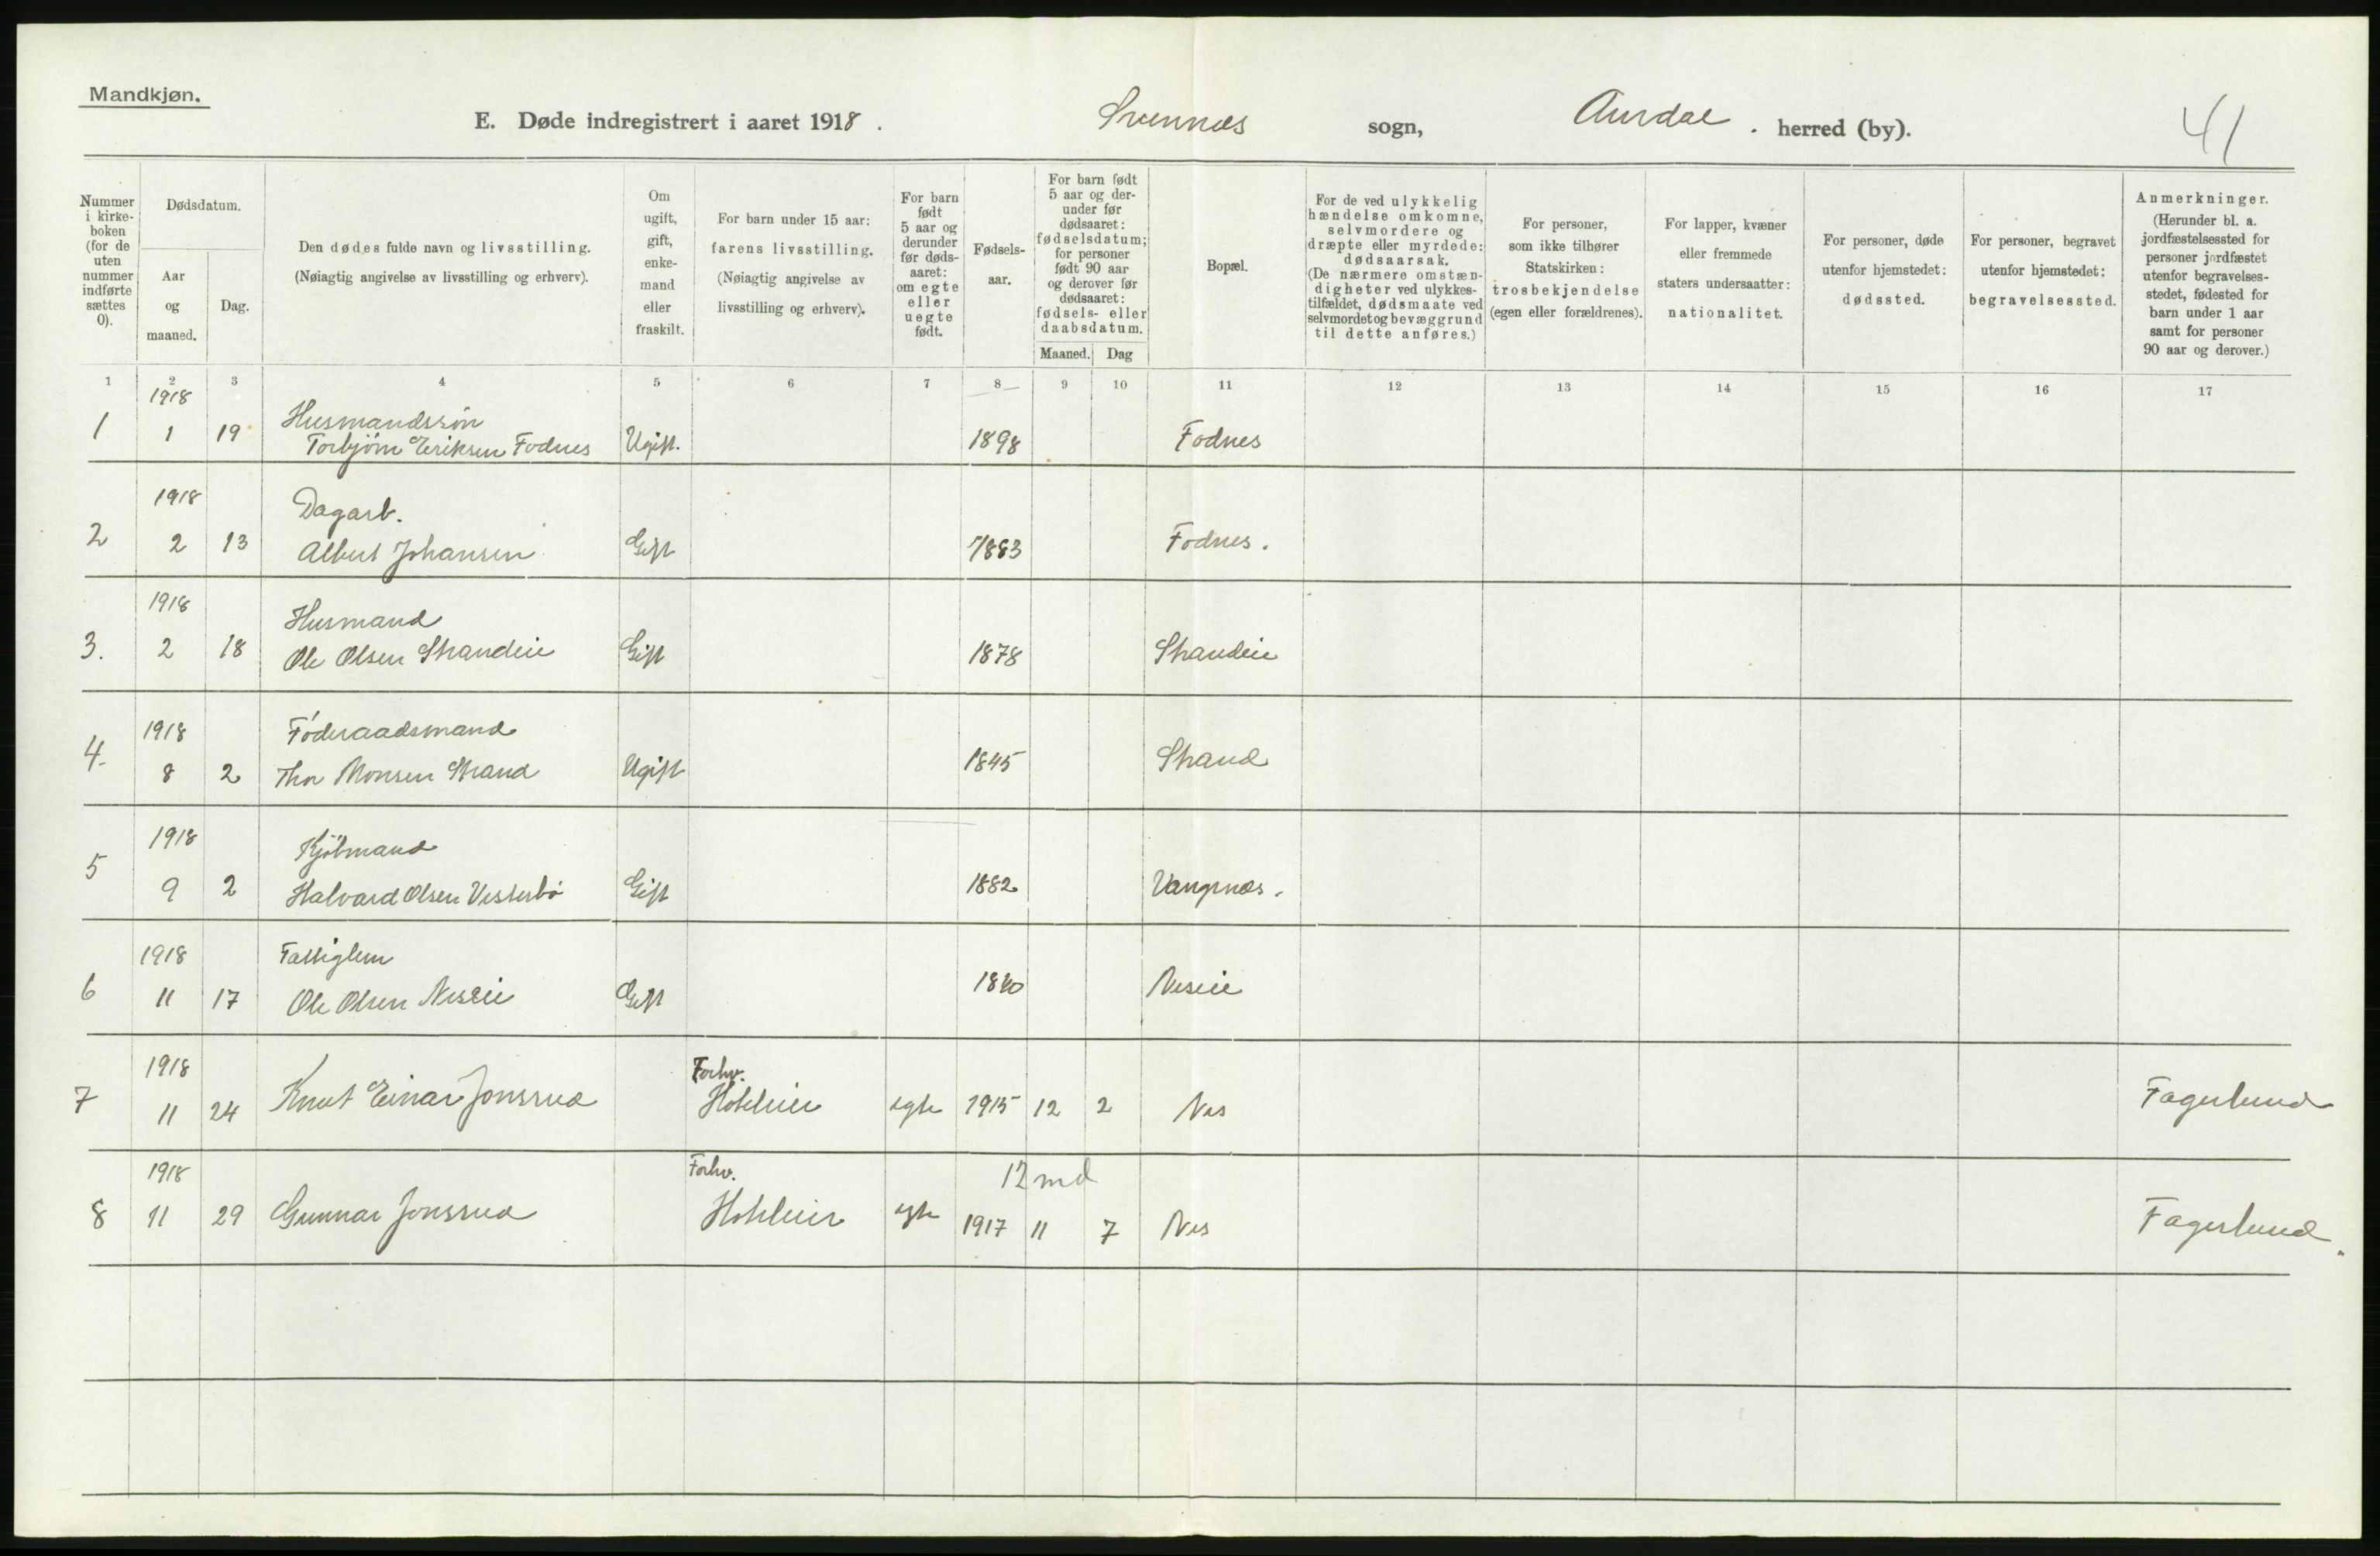 Mandkjøn.
E. Døde indregistrert i aaret 1918. Svennes sogn, Aurdal. herred (by). 41
Nummer i kirkeboken (for de uten nummer indførte sættes 0).
Dødsdatum.
Aar og maaned.
Dag.
Den dødes fulde navn og livsstilling.
(Nøiagtig angivelse av livsstilling og erhverv).
Om ugift, gift, enkemand eller fraskilt.
For barn under 15 aar: farens livsstilling.
(Nøiagtig angivelse av livsstilling og erhverv).
For barn født 5 aar og derunder før dødsaaret: om egte eller uegte født.
Fødselsaar.
For barn født 5 aar og derunder før dødsaaret: fødselsdatum; for personer født 90 aar og derover før dødsaaret: fødsels- eller daabsdatum.
Maaned. Dag
Bopæl.
For de ved ulykkelig hændelse omkomne, selvmordere og dræpte eller myrdede: dødsaarsak.
(De nærmere omstændigheter ved ulykkestilfældet, dødsmaate ved selvmordet og bevæggrund til dette anføres.)
For personer, som ikke tilhører Statskirken: trosbekjendelse (egen eller forældrenes).
For lapper, kvæner eller fremmede staters undersaatter: nationalitet.
For personer, døde utenfor hjemstedet: dødssted.
For personer, begravet utenfor hjemstedet: begravelsessted.
Anmerkninger.
(Herunder bl. a. jordfæstelsessted for personer jordfæstet utenfor begravelsesstedet, fødested for barn under 1 aar samt for personer 90 aar og derover.)
1 2 3 4 5 6 7 8 9 10 11 12 13 14 15 16 17
1918 Husmandssøn
1 1 19 Torbjørn Eriksen Fodnes Ugift. 1898 Fodnes
1918 Dagarb.
2 2 13 Albert Johansen Gift 1883 Fodnes.
1918 Husmand
3. 2 18 Ole Olsen Strandeie Gift 1878 Strandeie
1918 Føderaadsmand
4. 8 2 Thor Monsen Strand Ugift 1845 Strand
1918 Kjøbmand
5 9 2 Halvard Olsen Vesterbø Gift 1882 Vangsnes.
1918 Fattiglem
6 11 17 Ole Olsen Neseie Gift Neseie
1918 Forhv.
7 11 24 Knut Einar Jonsrud Hoteleier egte 1915 12 2 Nes Fagerlund
1918 Forhv. 12 md
8 11 29 Gunnar Jonsrud Hoteleier egte 1917 11 7 Nes Fagerlund.